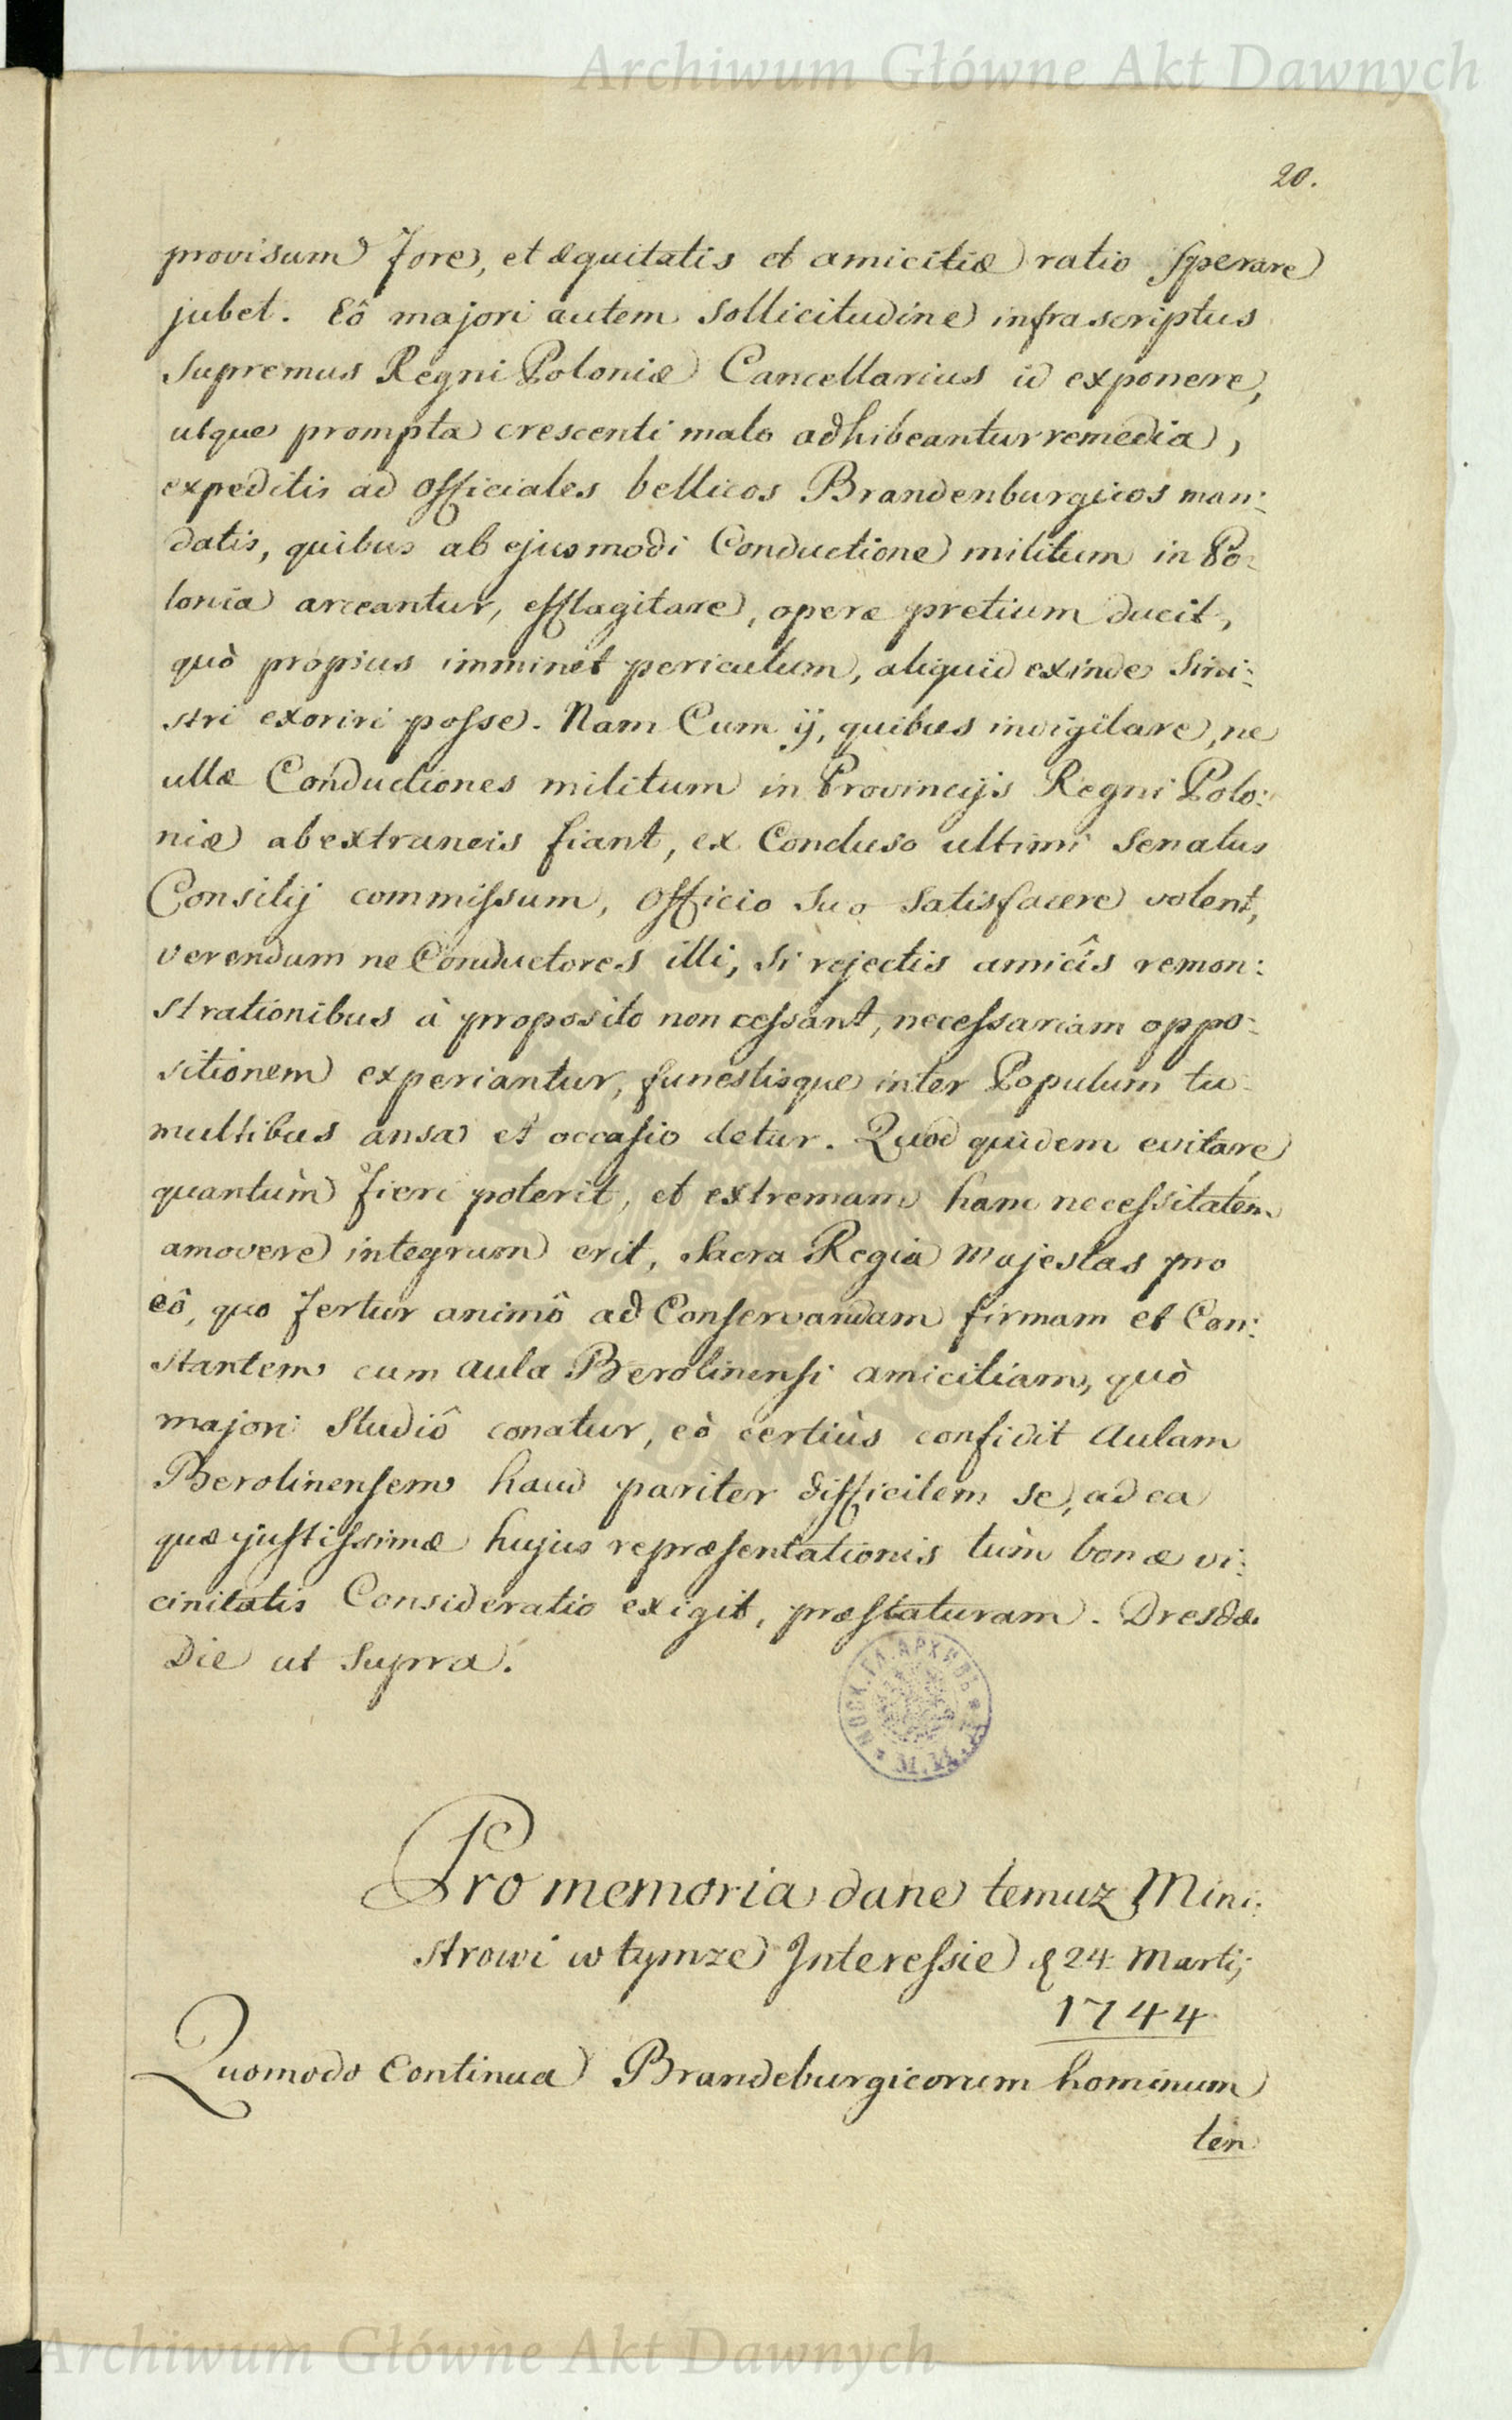 Archiwum Główne Akt Dawnych
20.
provisum fore, et æquitatis et amicitiæ ratio sperare
jubet. Eô majori autem sollicitudine infrascriptus
Supremus Regni Poloniæ Cancellarius id exponere,
utque prompta crescenti malo adhibeantur remedia,
expeditis ad Officiales bellicos Brandenburgicos man:
datis, quibus ab ejusmodi Conductione militum in Po:
lonia arceantur, efflagitare, operæ pretium ducit,
quò propius imminet periculum, aliquid exinde Sini:
stri exoriri posse. Nam Cum ij, quibus invigilare, ne
ullæ Conductiones militum in Provincijs Regni Polo:
niæ ab extraneis fiant, ex Concluso ultimi Senatus
Consilij commissum, Officio Suo Satisfacere volent,
verendum ne Conductores illi, Si rejectis amicîs remon:
strationibus à proposito non cessant, necessariam oppo:
sitionem experiantur, funestisque inter Populum tu:
multibus ansa et occasio detur. Quod quidem evitare
quantùm fieri poterit, et extremam hanc necessitatem
amovere integrum erit, Sacra Regia Majestas pro
eô, quo fertur animô ad Conservandam firmam et Con:
stantem cum Aula Berolinensi amicitiam, quò
majori Studiô conatur, eò certiùs confidit Aulam
Berolinensem haud pariter difficilem se, ad ea
quæ justissimæ hujus repræsentationis tùm bonæ vi:
cinitatis Consideratio exigit, præstaturam. Dresdæ
Die ut Supra.
МОСК. ГЛ. АРХИВЪ * М. И. Д. *
Pro memoria dane temuz Mini:
strowi w tymze Interessie d 24 Martij
1744
Quomodo Continua Brandeburgicorum hominum
ten
Archiwum Główne Akt Dawnych